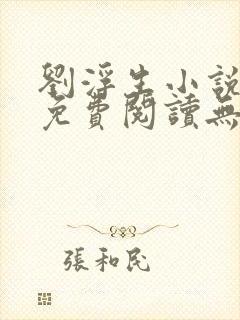 劉浮生小說
免費閱讀無
張和民